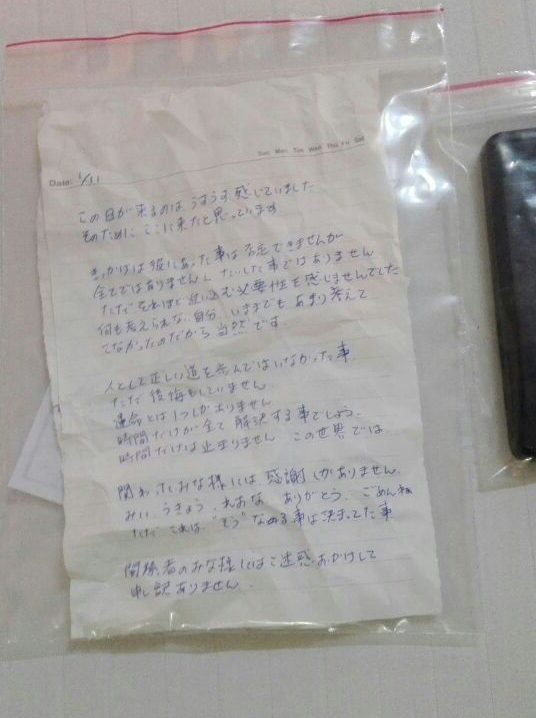 Sun Mon Tue Wed Thu Fri Sat
Date: 1/11
この日が来るのは、うすうす感じていました
そのために ここに来たと思っています
きっかけは彼にあった事は否定できませんが
全てではありませんし たいした事ではありません
ただそれほど 必要性を感じませんでした
何も考えられない自分、いままでもあまり考えて
こなかったのだから当然です。
人として正しい道を歩んではいなかった事
ただ後悔もしていません
運命とは1つしかありません
時間だけが全て解決する事でしょう。
時間だけは止まりません この世界では。
関わったみな様には感謝しかありません。
みい、うきょう、れおな ありがとう、ごめんね
ただ これは "そう" なる事は決まってた事
関係者のみな様にはご迷惑おかけして
申し訳ありません。